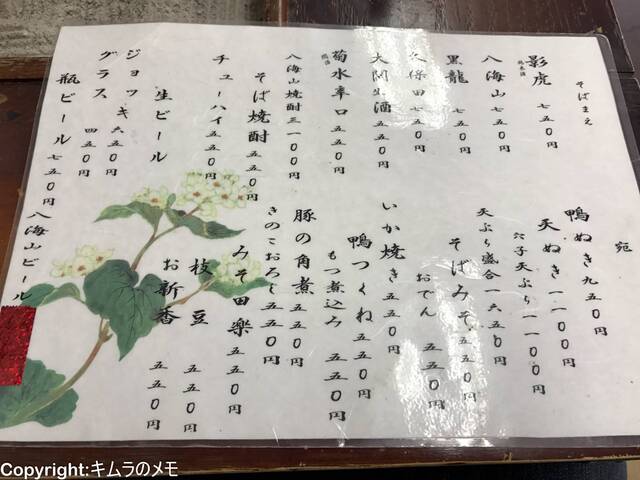 そばまえ
影虎 純米酒 七五〇円
八海山 七五〇円
黒龍 七五〇円
久保田 七五〇円
大関生酒 五五〇円
菊水辛口 五五〇円
八海山焼酎 三一〇〇円
そば焼酎 五五〇円
チューハイ 五五〇円
生ビール
ジョッキ 六五〇円
グラス 四五〇円
瓶ビール 七五〇円
八海山ビール
肴
鴨ぬき 九五〇円
天ぬき 一一〇〇円
穴子天ぷら 一一〇〇円
天ぷら盛合 一六五〇円
そばみそ 五五〇円
おでん 五五〇円
いか焼き 五五〇円
鴨つくね 五五〇円
もつ煮込み 五五〇円
豚の角煮 五五〇円
きのこおろし 五五〇円
みそ田楽 五五〇円
枝豆 五五〇円
お新香 五五〇円
Copyright:キムラのメモ